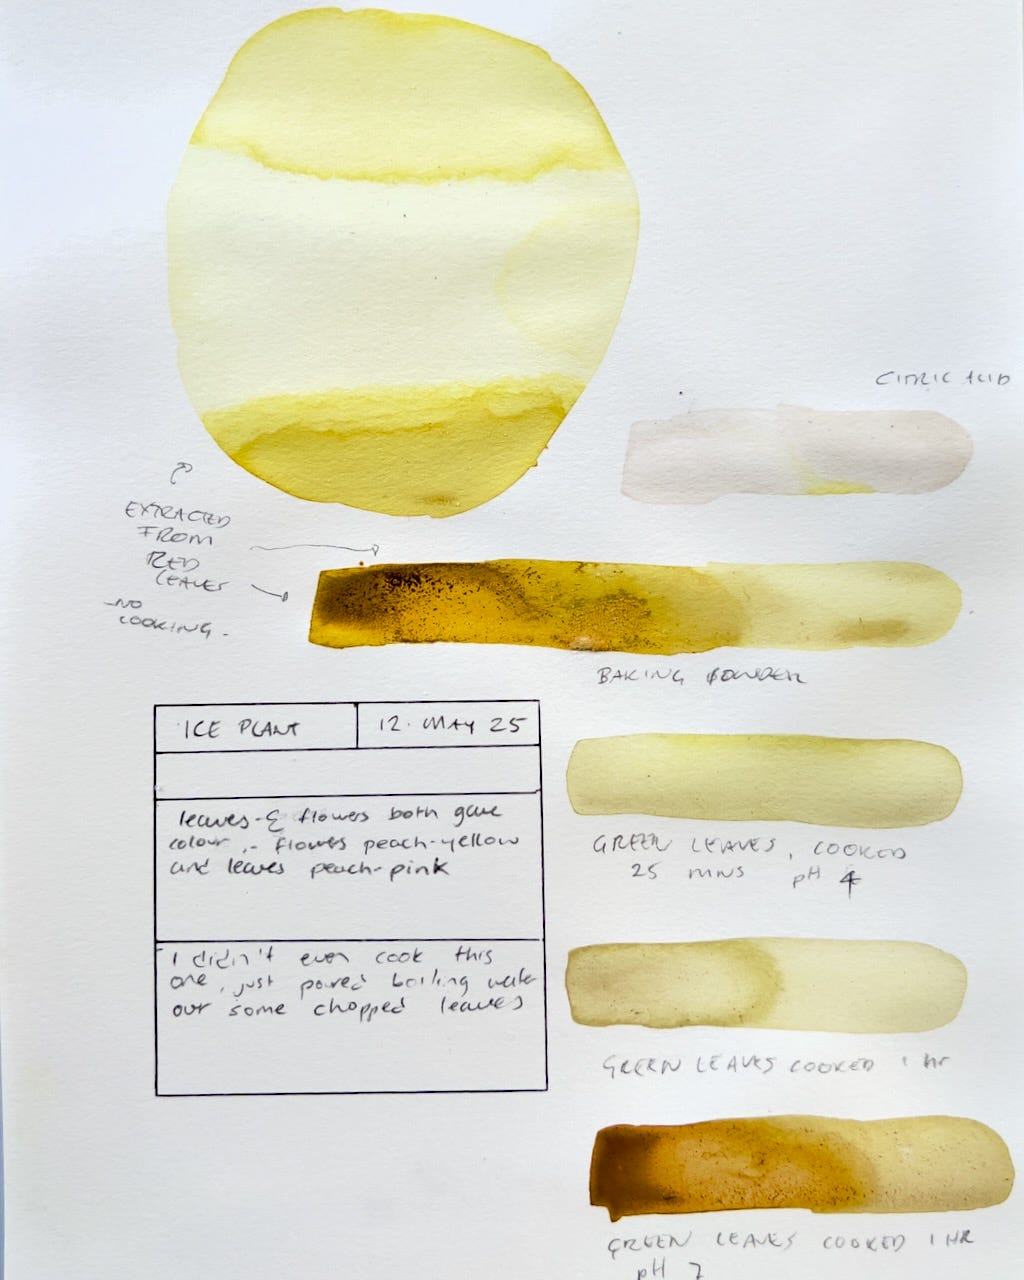 CITRIC ACID
EXTRACTED
FROM
RED
LEAVES
-NO
COOKING.
BAKING POWDER
ICE PLANT
12. MAY 25
leaves & flowers both gave
colour - flowers peach-yellow
and leaves peach-pink
I didn't even cook this
one, just poured boiling water
over some chopped leaves
GREEN LEAVES, COOKED
25 MINS pH 4
GREEN LEAVES COOKED 1 Hr
GREEN LEAVES COOKED 1 HR
pH 7